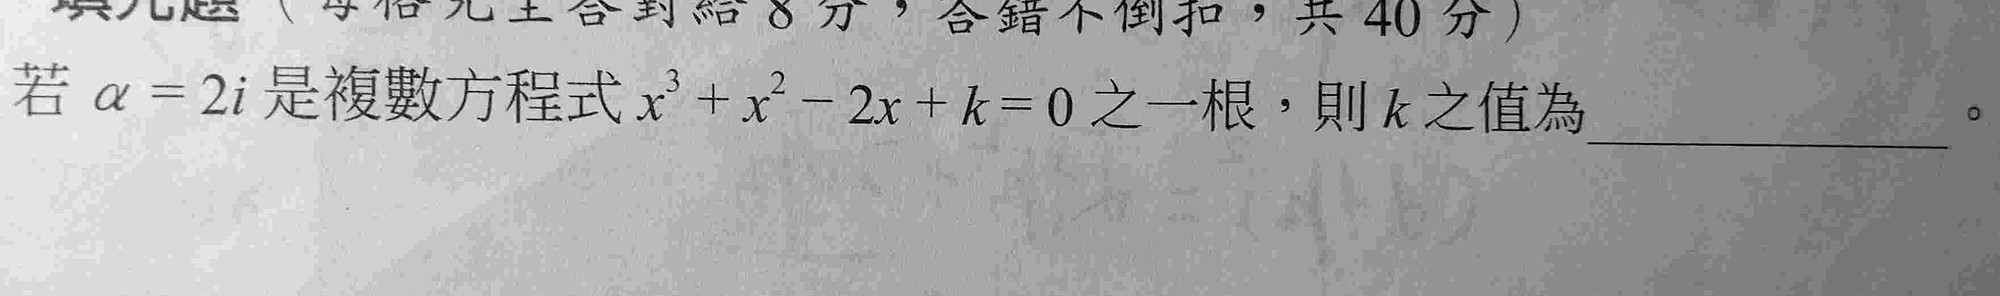 填充題（每格完全答對給 8 分，答錯不倒扣，共 40 分）
若 α = 2i 是複數方程式 x³ + x² − 2x + k = 0 之一根，則 k 之值為＿＿＿＿＿＿。